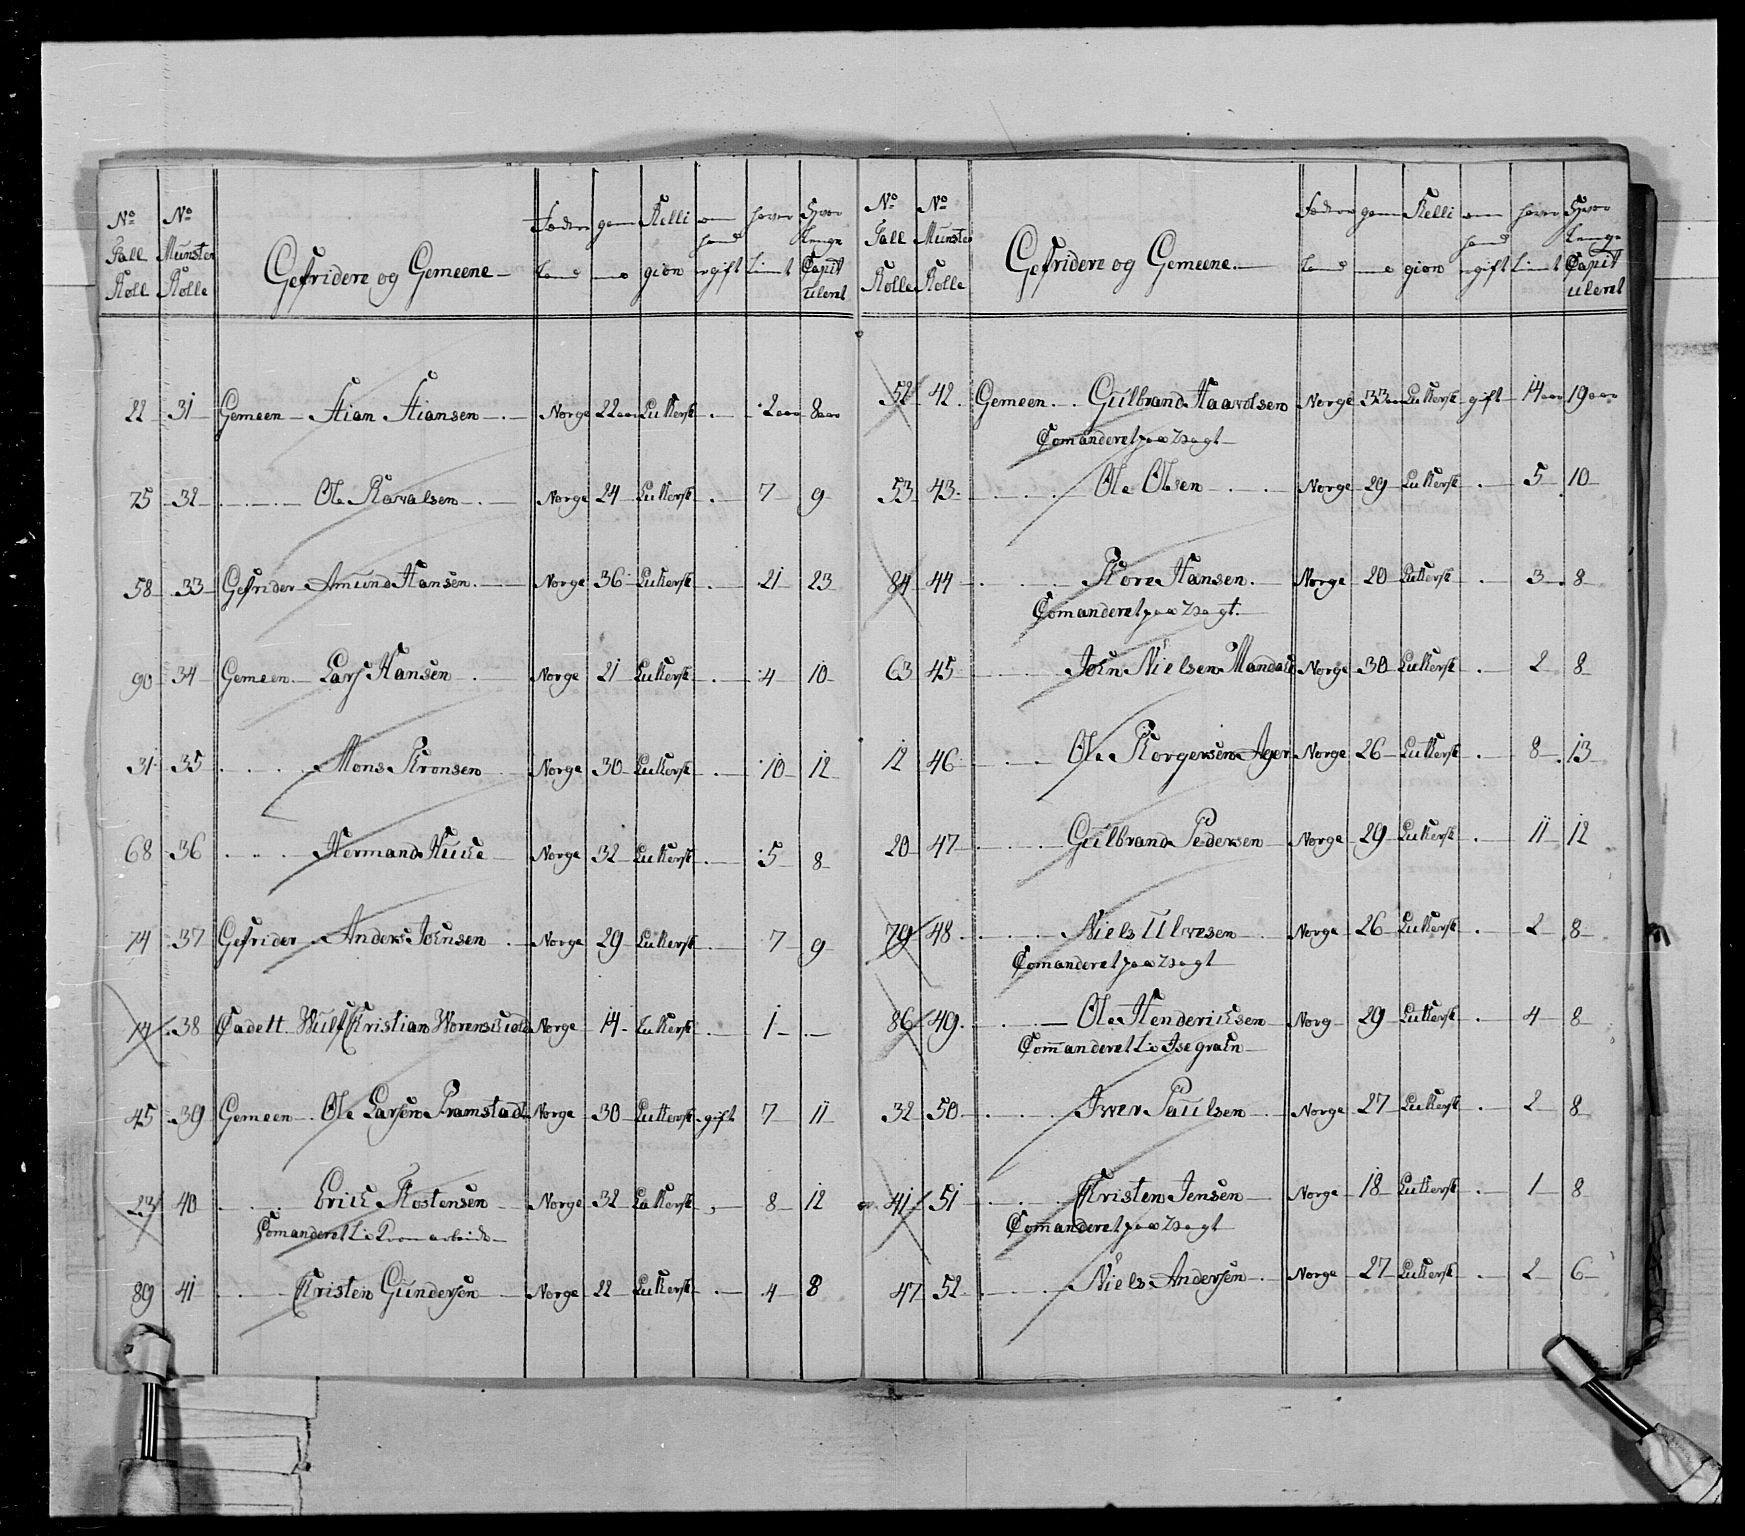 No Tall Roll | No Munster Rolle | Gefridere og Gemeene | Føde Land | gam | Relli gion | om hand er gift | haver tient | Hvor lenge Capit uleret
22 | 31 | Gemeen Hian Hiansen | Norge | 22 aar | Luthersk | - | 2 aar | 8 aar
75 | 32 | Ole | Norge | 24 | Luthersk | - | 7 | 9
58 | 33 | Gefrider Amund Hansen | Norge | 36 | Luthersk | - | 21 | 23
90 | 34 | Gemeen Lars Hansen | Norge | 21 | Luthersk | - | 4 | 10
31 | 35 | Mons | Norge | 30 | Luthersk | - | 10 | 12
68 | 36 | Hermand | Norge | 32 | Luthersk | - | 5 | 8
74 | 37 | Gefrider Anders Joensen | Norge | 29 | Luthersk | - | 7 | 9
14 | 38 | Cadett Wulf Kristian | Norge | 14 | Luthersk | - | 1 | -
45 | 39 | Gemeen Ole Larsen Framstad | Norge | 30 | Luthersk | gift | 7 | 11
23 | 40 | Erick Thostensen | Norge | 32 | Luthersk | - | 8 | 12
Comanderet
89 | 41 | Kristen Gundersen | Norge | 22 | Luthersk | - | 4 | 8
No Tall Rolle | No Munster Rolle | Gefridere og Gemeene | Føde Land | gam | Relli gion | om hand er gift | haver tient | Hvor lenge Capit uleret
52 | 42 | Gemeen Gulbrand Haavolsen | Norge | 33 aar | Luthersk | gift | 14 aar | 19 aar
Comanderet paa Vagt
53 | 43 | Ole Olsen | Norge | 29 | Luthersk | - | 5 | 10
84 | 44 | Thore Hansen | Norge | 20 | Luthersk | - | 3 | 8
Comanderet paa Vagt
63 | 45 | Joen Nielsen Mandahl | Norge | 30 | Luthersk | - | 2 | 8
12 | 46 | Ole Thorgersen Ager | Norge | 26 | Luthersk | - | 8 | 13
20 | 47 | Gulbrand Pedersen | Norge | 29 | Luthersk | - | 11 | 12
79 | 48 | Niels Ulvesen | Norge | 26 | Luthersk | - | 2 | 8
Comanderet paa Vagt
86 | 49 | Ole Hendericksen | Norg | 29 | Luthersk | - | 4 | 8
Commanderet
32 | 50 | Iver Paulsen | Norge | 27 | Luthersk | - | 2 | 8
41 | 51 | Kristen Jensen | Norge | 18 | Luthersk | - | 1 | 8
Commanderet paa Vagt
47 | 52 | Niels Andersen | Norge | 27 | Luthersk | - | 2 | 6